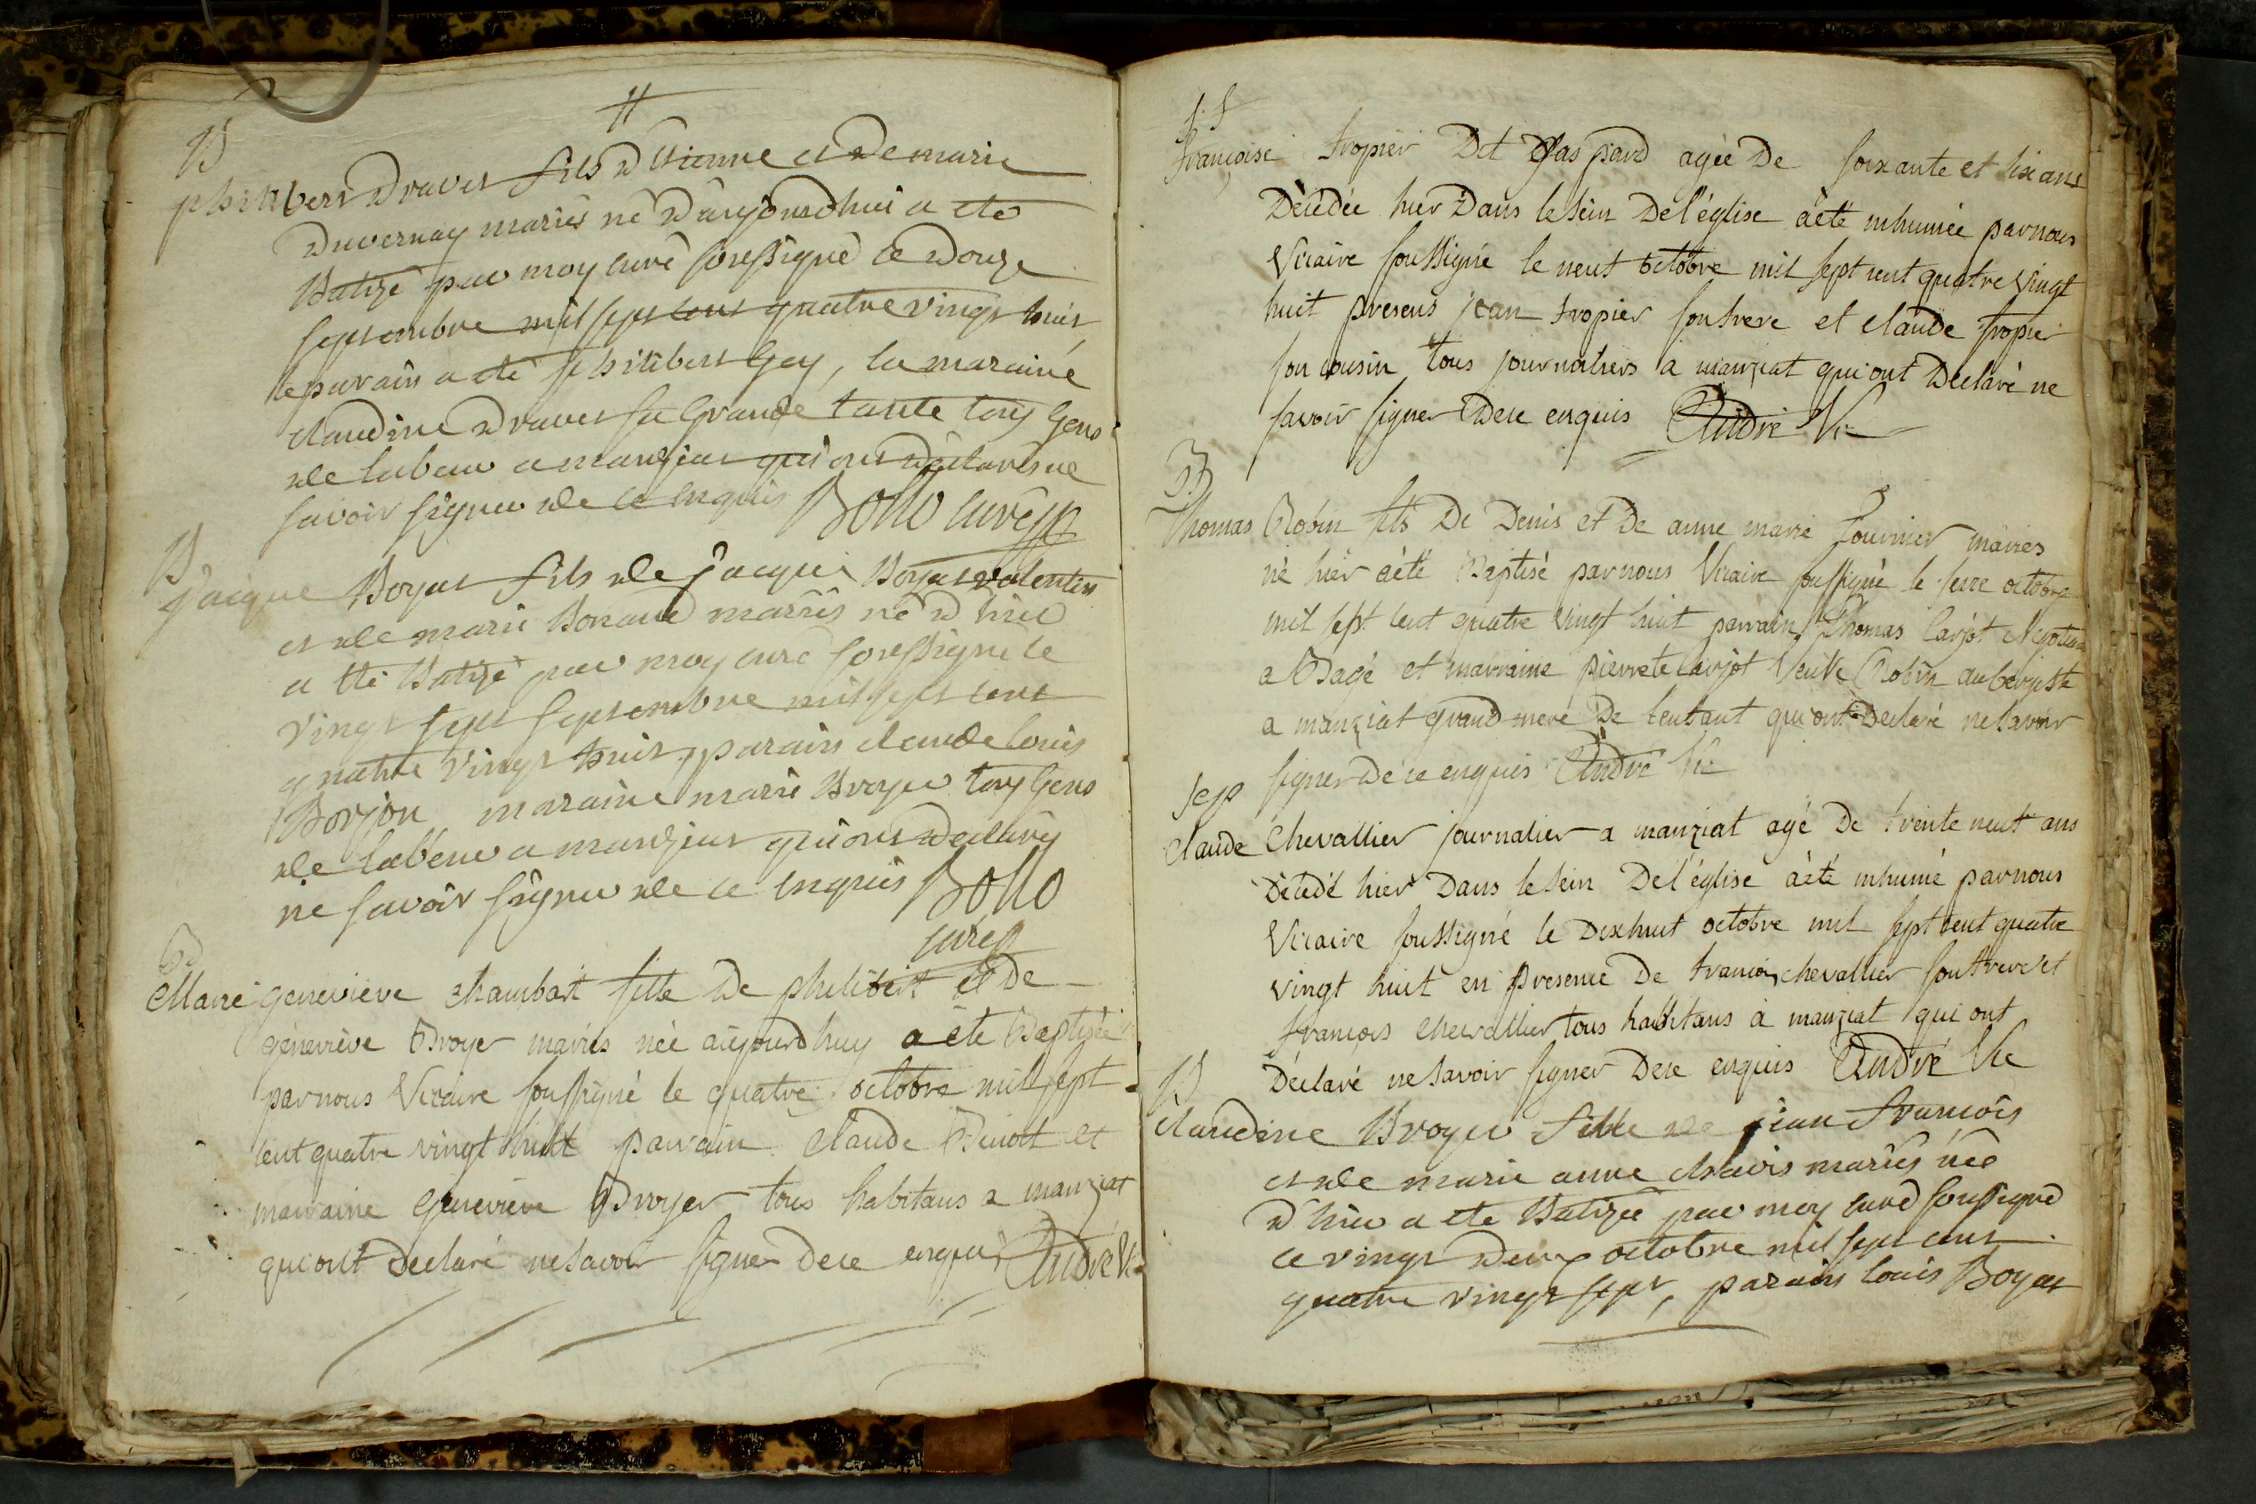 B
philibert Dravet fils D'Etienne et De marie
Duvernay mariés né D'aujourdhui a ete
Batizé par moy curé sousigné le Douze
septembre mil sept cent quatre vingt huit
le parain a été philibert Gey, la maraine
claudine Dravet sa Grande tante touy Gens
de labeur a manziat qui ont Déclarés ne
savoir signer de ce enquis Bollo curé
B
jacque Boyat fils de jacque Boyat valentin
et de marie Bonaud mariés né D'hier
a été Batizé par moy curé sousigné le
vingt sept septembre mil sept cent
quatre vingt huit, parain claude louis
Borjon maraine marie Broyer touy Gens
de labeur a manziat qui ont Declaréy
ne savoir signer de ce enquis Bollo
curé
B
Marie geneviéve chambart fille De philibert et De
géneviève Broyer mariés née aujourdhuy a été Baptisée
par nous Vicaire soussigné le quatre octobre mil sept
cent quatre vingt huit parrain Claude Benoit et
marraine Geneviève Broyer tous habitans a manziat
qui ont Declaré ne savoir signer de ce enquis André Vic
Françoise tropier Dit Gaspard agée De soixante et six ans
Décédée hier Dans le sein De l'église a été inhumée par nous
Vicaire soussigné le neuf octobre mil sept cent quatre vingt
huit presens jean tropier son frere et claude tropier
son cousin tous journaliers a manziat qui ont Declaré ne
savoir signer De ce enquis André Vic
B
Thomas Robin fils De Denis et De anne marie fournier maries
né hier a été Baptisé par nous Vicaire soussigné le seize octobre
mil sept cent quatre vingt huit parrain Thomas Carjot Negotiant
a Bagé et marraine pierrete Carjot Veuve Robin aubergiste
a manziat grand mere De l'enfant qui ont Declaré ne savoir
signer De ce enquis André Vic
Sep
Claude Chevallier journalier a manziat agé De trente neuf ans
Décédé hier Dans le sein De l'église a été inhumé par nous
Vicaire soussigné le Dixhuit octobre mil sept cent quatre
vingt huit en presence De francois chevallier son frere et
françois chevallier tous habitans à manziat qui ont
Déclaré ne savoir signer De ce enquis André Vic
B
claudine Broyer fille de jean francois
et de marie anne chavis mariés née
D'hier a ete Batizée par moy curé sousigné
ce vingt Deux octobre mil sept cent
quatre vingt sept, parain louis Boyat